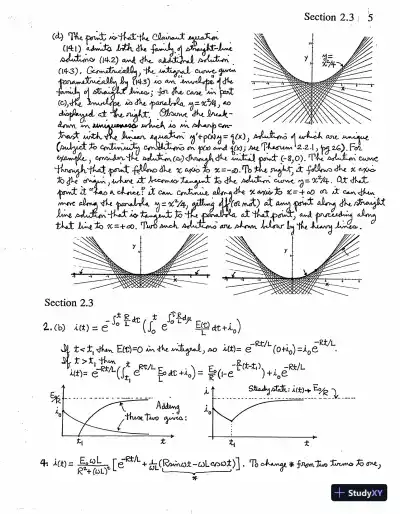 Section 2.3 5
(d) The point is that the Clairaut equation
(14.1) admits both the family of straight-line
solutions (14.2) and the additional solution
(14.3). Geometrically, the integral curve given
parametrically by (14.3) is an "envelope" of the
family of straight lines; for the case in part
(c), the envelope is the parabola y = x²/4, as
displayed at the right. Observe the break-
down in uniqueness which is in sharp con-
trast with the linear equation y'+p(x)y = q(x), solutions of which are unique
(subject to continuity conditions on p(x) and q(x); see Theorem 2.2.1, pg 26). For
example, consider the solution(s) through the initial point (-8,0). The solution curve
through that point follows the x axis to x=-∞. To the right, it follows the x axis
to the origin, where it becomes tangent to the solution curve y = x²/4. At that
point it "has a choice": it can continue along the x axis to x = +∞ or it can then
move along the parabola y = x²/4, getting off (or not) at any point along the straight
line solution that is tangent to the parabola at that point, and proceeding along
that line to x=+∞. Two such solutions are shown below by the heavy lines.
y
y = x²/4
x
y
x
y
x
Section 2.3
2. (b) i(t) = e^{-∫₀ᵗ R/L dt} (∫₀ᵗ e^{∫₀ R/L dμ} E(t)/L dt + i₀)
If t < t₁ then E(t)=0 in the integral, so i(t) = e^{-Rt/L}(0+i₀) = i₀e^{-Rt/L}.
If t > t₁ then
i(t) = e^{-Rt/L}(∫_{t₁}^t e^{Rt/L} E₀/L dt + i₀) = E₀/R (1-e^{-R(t-t₁)/L}) + i₀e^{-Rt/L}
E₀/R
i₀
Adding
these two gives:
t₁
t
i
i₀
Steady state: i(t)→E₀/R
t₁
t
4. i(t) = E₀ωL/(R²+(ωL)²) [e^{-Rt/L} + 1/ωL (R sin ωt - ωL cos ωt)]. To change * from two terms to one,
*
+ StudyXY